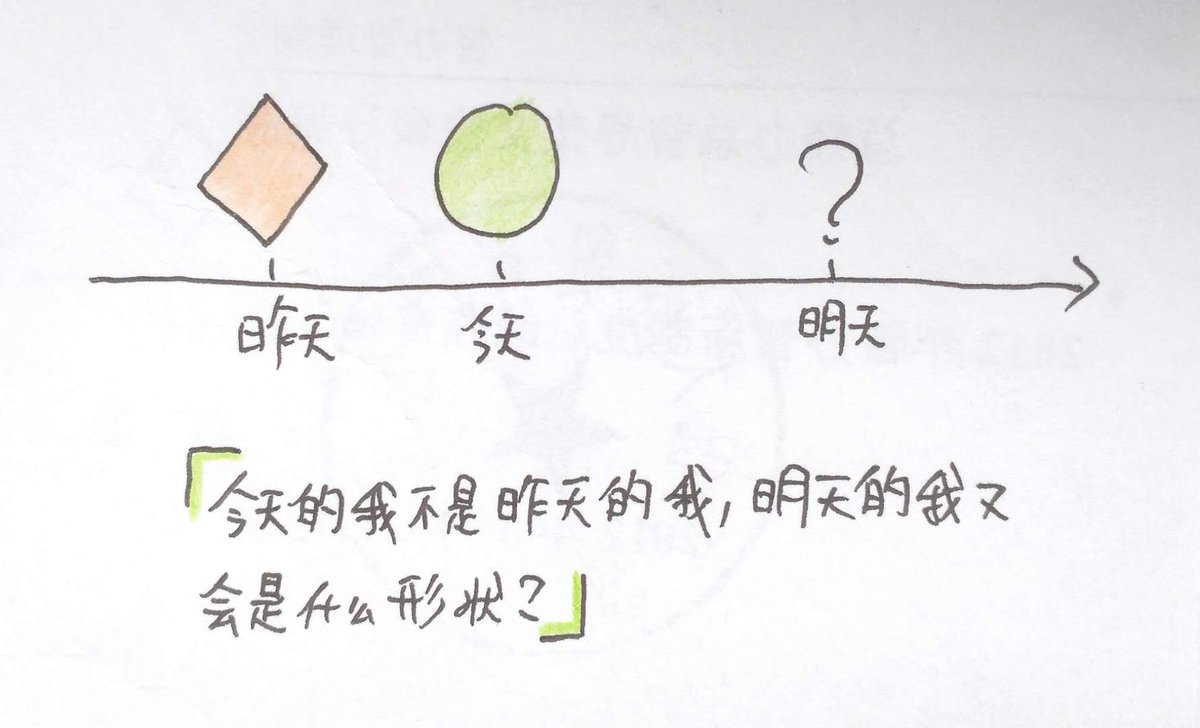 ?
昨天 今天 明天
「今天的我不是昨天的我,明天的我又
会是什么形状?」